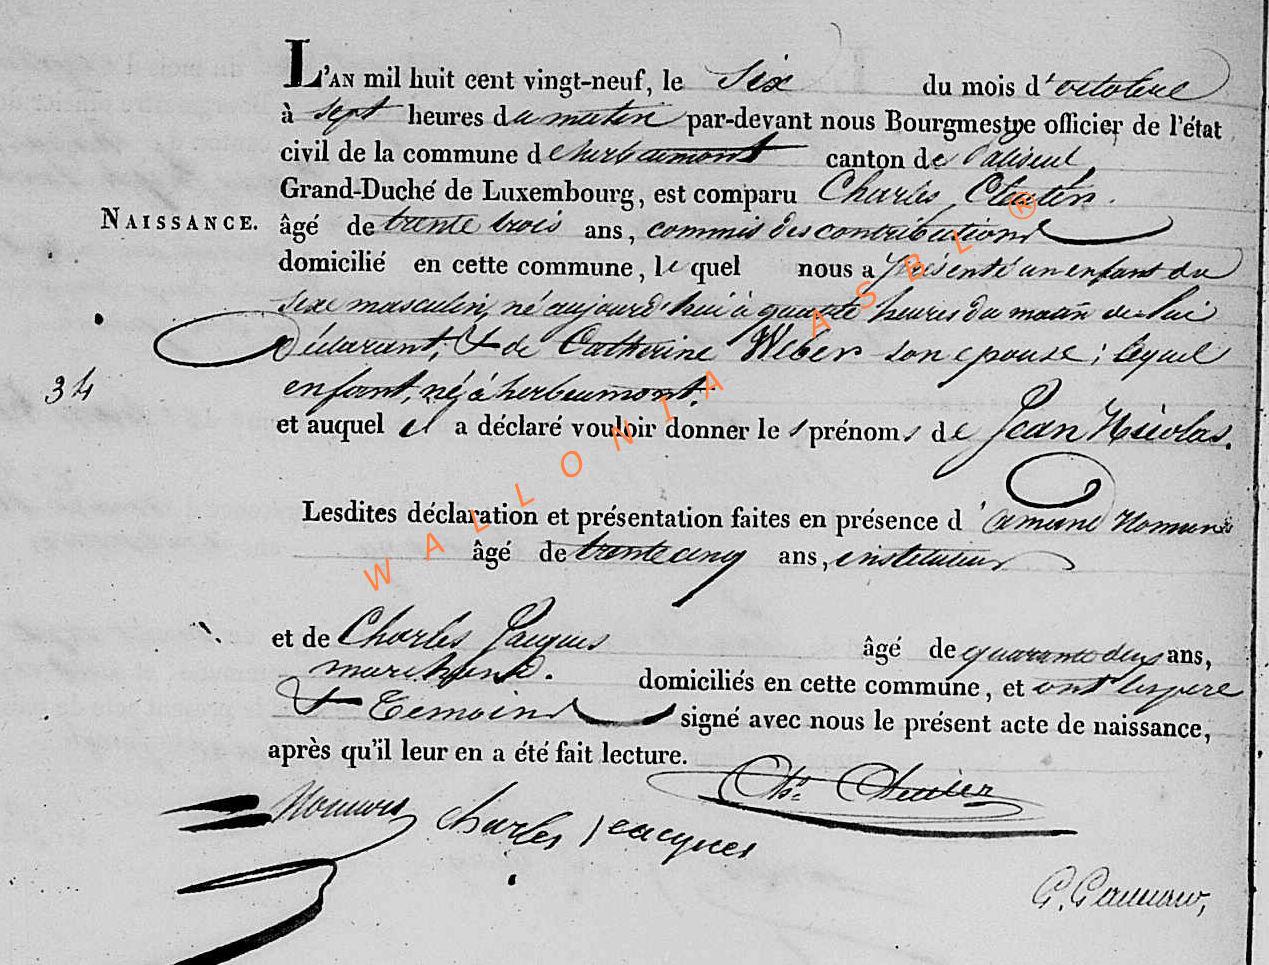 L'AN mil huit cent vingt-neuf, le Six du mois d'octobre
à sept heures du matin par-devant nous Bourgmestre officier de l'état
civil de la commune d'herbeumont canton de Paliseul
Grand-Duché de Luxembourg, est comparu Charles
NAISSANCE.
âgé de trente trois ans, commis des contributions
domicilié en cette commune, le quel nous a présenté un enfant du
sexe masculin, né aujourd'hui à quatre heures du matin de lui
déclarant, & de Catherine Weber son epouse; lequel
34
enfant, né à herbeumont.
et auquel il a déclaré vouloir donner les prénoms de Jean Nicolas.
Lesdites déclaration et présentation faites en présence d'amand
âgé de trente cinq ans, instituteur
et de Charles Jacques âgé de quarante deux ans,
marchand. domiciliés en cette commune, et ont les pere
& Temoins signé avec nous le présent acte de naissance,
après qu'il leur en a été fait lecture.
Charles Jacques
WALLONIA ASBL ®